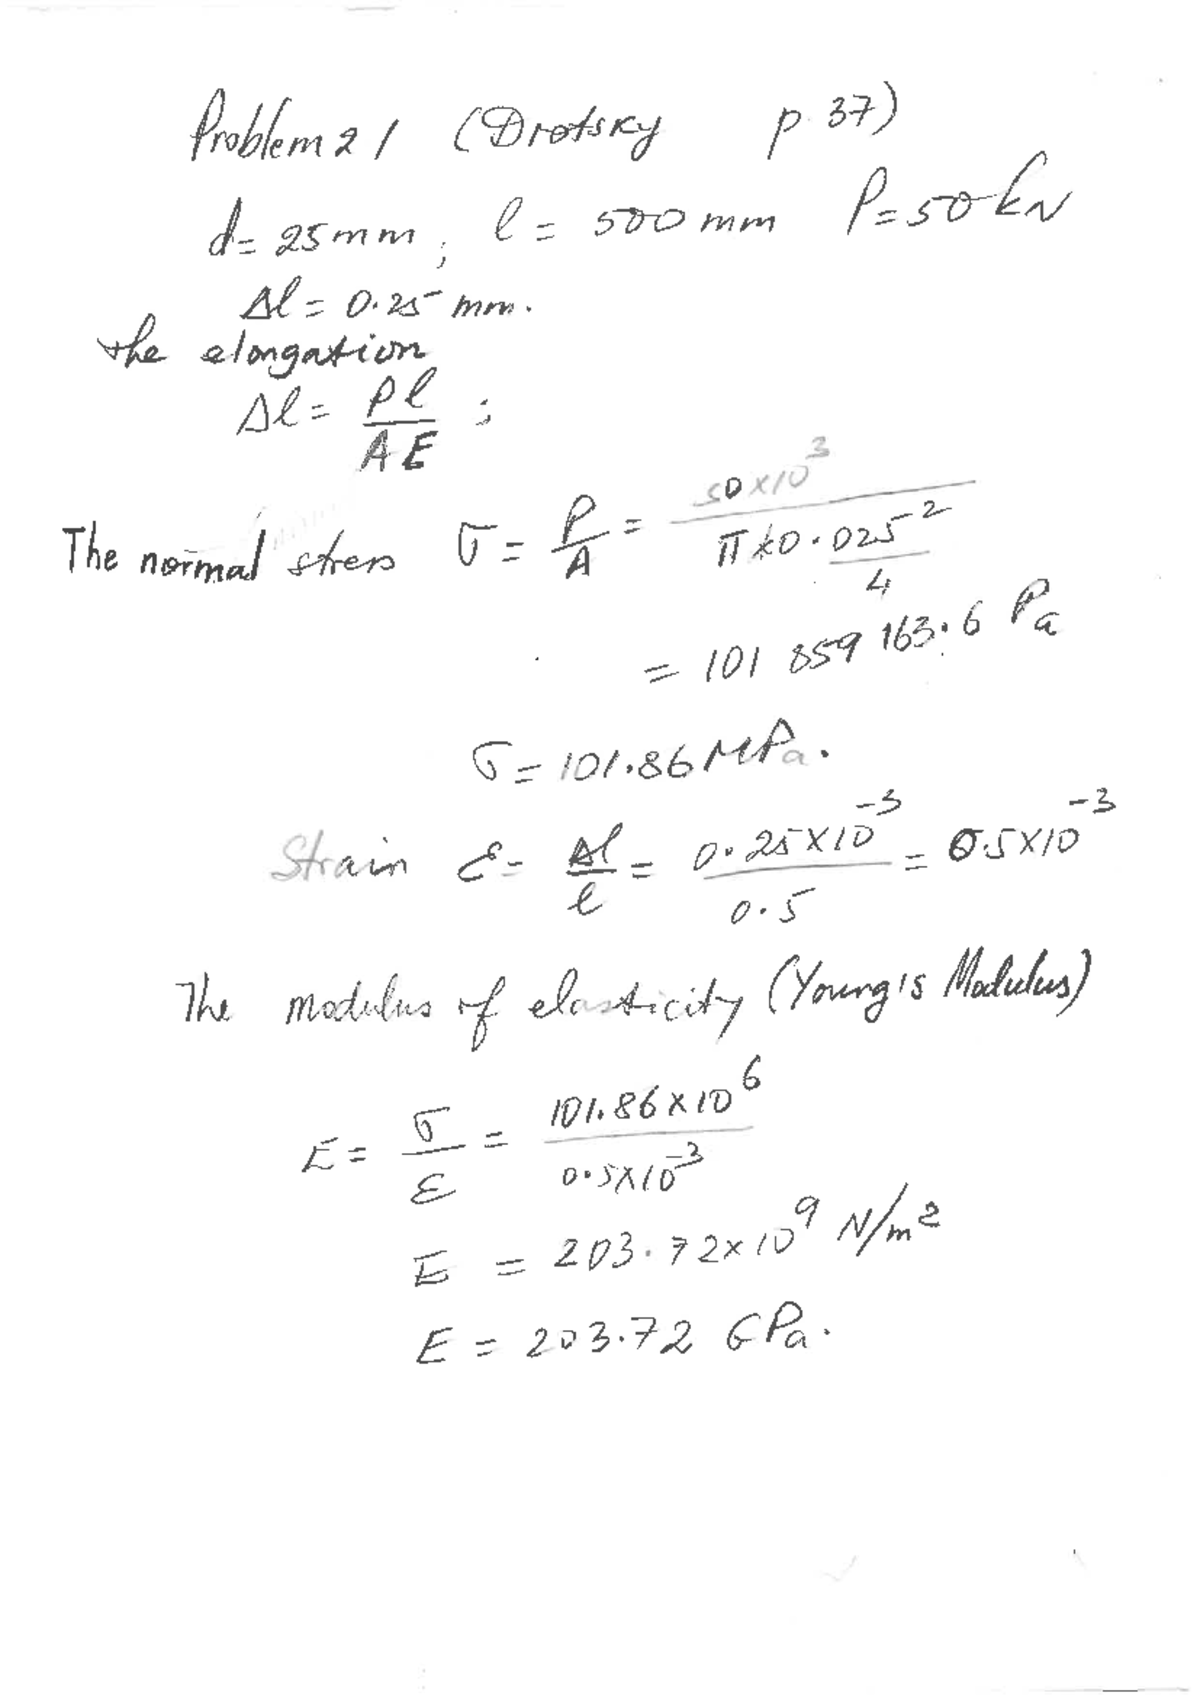 Problem 21 (Drotsky p 37)
d = 25 mm ; l = 500 mm P = 50 kN
Δl = 0.25 mm.
the elongation
Δl = Pl / AE ;
The normal stress σ = P/A = 50×10³ / (π×0.025²/4)
= 101 859 163.6 Pa
σ = 101.86 MPa.
Strain ε = Δl/l = 0.25×10⁻³ / 0.5 = 0.5×10⁻³
The modulus of elasticity (Young's Modulus)
E = σ/ε = 101.86×10⁶ / 0.5×10⁻³
E = 203.72×10⁹ N/m²
E = 203.72 GPa.